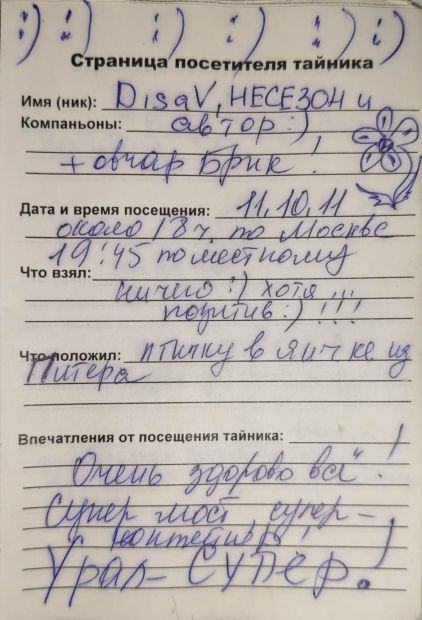 :) :) :) :) :) :) :)
Страница посетителя тайника
Имя (ник): DisaV, НЕСЕЗОН и
Компаньоны: автор :)
+ овчар Брик!
Дата и время посещения: 11.10.11
около 18 ч. по Москве
19:45 по местному
Что взял:
ничего :) хотя !!!
позитив :) !!!
Что положил: птичку в яичке из
Питера
Впечатления от посещения тайника:
Очень здорово всё!
Супер мост, супер-
контейнер!
Урал - СУПЕР!